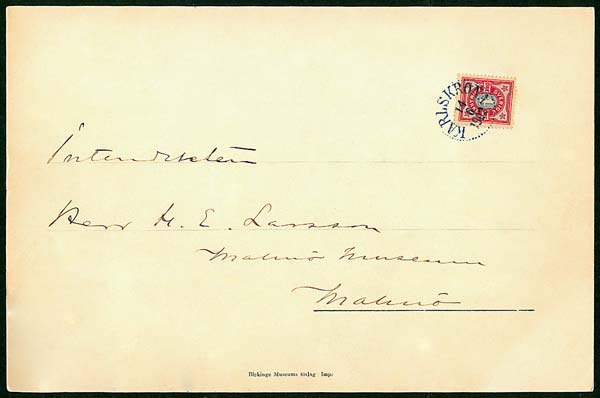 KARLSKRONA
14
Intendenten
Herr H. E. Larsson
Malmö Museum
Malmö
Blekinge Museums förlag Imp: